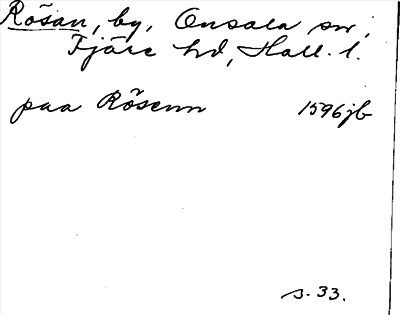 Rösan, by, Onsala sn,
Fjäre hd, Hall. l.
paa Rösenn 1596 jb
s. 33.